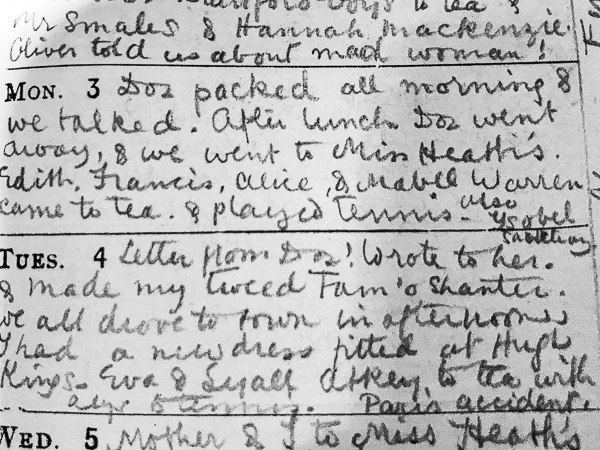 boys to tea &
Mr Smales & Hannah Mackenzie.
Oliver told us about mad woman!
MON. 3 Doz packed all morning &
we talked. After lunch Doz went
away, & we went to Miss Heath's.
Edith, Francis, Alice, & Mabel Warren
came to tea. & played tennis. also
Ysobel
TUES. 4 Letter from Doz! Wrote to her.
& made my tweed Tam o'Shanter.
we all drove to town in afternoon
I had a new dress fitted at Hugh
Kings. Eva & Lyall to tea with
& tennis. Paris accident.
WED. 5 Mother & I to Miss Heath's